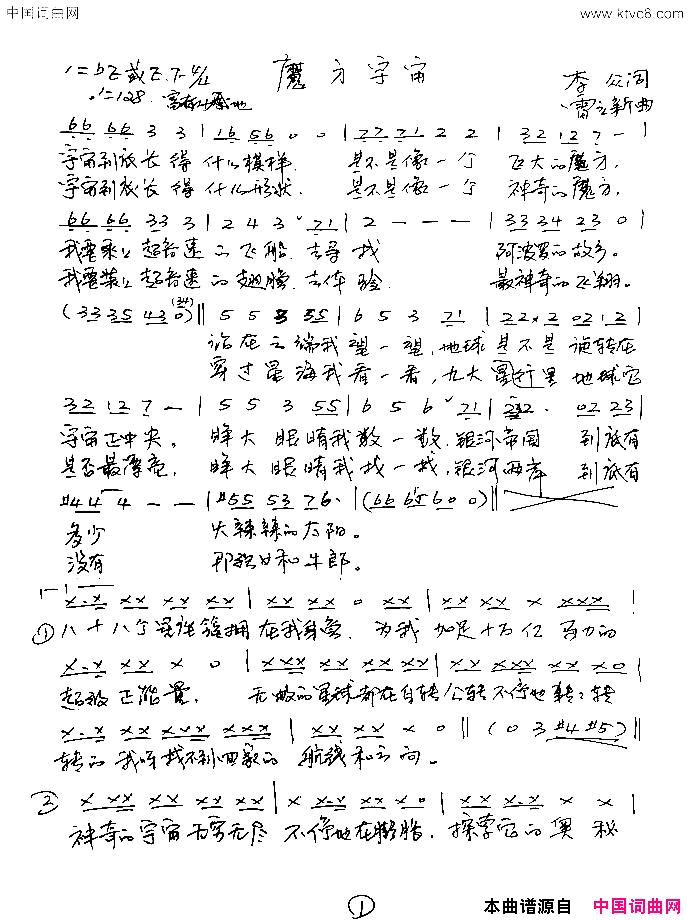 中国词曲网
www.ktvc8.com
魔方宇宙
1=bE或E.F 4/4
李众词
雷立新曲
♩=128.
66 66 3 3 | 16 56 0 0 | 77 71 2 2 | 32 12 7 - |
宇宙到底长得什么模样, 是不是像一个飞大的魔方,
宇宙到底长得什么形状, 是不是像一个神奇的魔方,
66 66 33 3 | 2 4 3 ˇ 71 | 2 - - - | 33 34 23 0 |
我要乘上超音速的飞船,去寻找阿波罗的故乡。
我要装上超音速的翅膀,去体验最神奇的飞翔。
(33 35 43 0) (34) || 5 5 3 55 | 6 5 3 71 | 22·2 0212 |
站在云端我望一望,地球是不是旋转在
穿过星海我看一看,九大行星地球它
32 12 7 - | 5 5 3 55 | 6 5 6 ˇ 71 | 22· 02 23 |
宇宙正中央。睁大眼睛我数一数,银河帝国到底有
是否最漂亮,睁大眼睛我找一找,银河两岸到底有
#44 4 - - | #55 53 76· | (66 65 60 0) ||
多少 火辣辣的太阳。
没有 那织女和牛郎。
x·x xx xx xx | xx xx 0 xx | xx xx x xxx |
① 八十八个星座簇拥在我身旁,为我加足十万亿马力的
x·x xx x 0 | xxx xxx xx xx | xx xxx xx x0 |
超级正能量,无数的星球都在自转公转不停地转:转
x·x xx xxx xxx | xx xx x 0 || (0 3 #4 #5) ||
转的我呀找不到回家的航线和方向。
② x xx xx xx xx | x xx xx x0 | xx xx x x |
神奇的宇宙无穷无尽不停地在膨胀,探索它的奥秘
①
本曲谱源自 中国词曲网